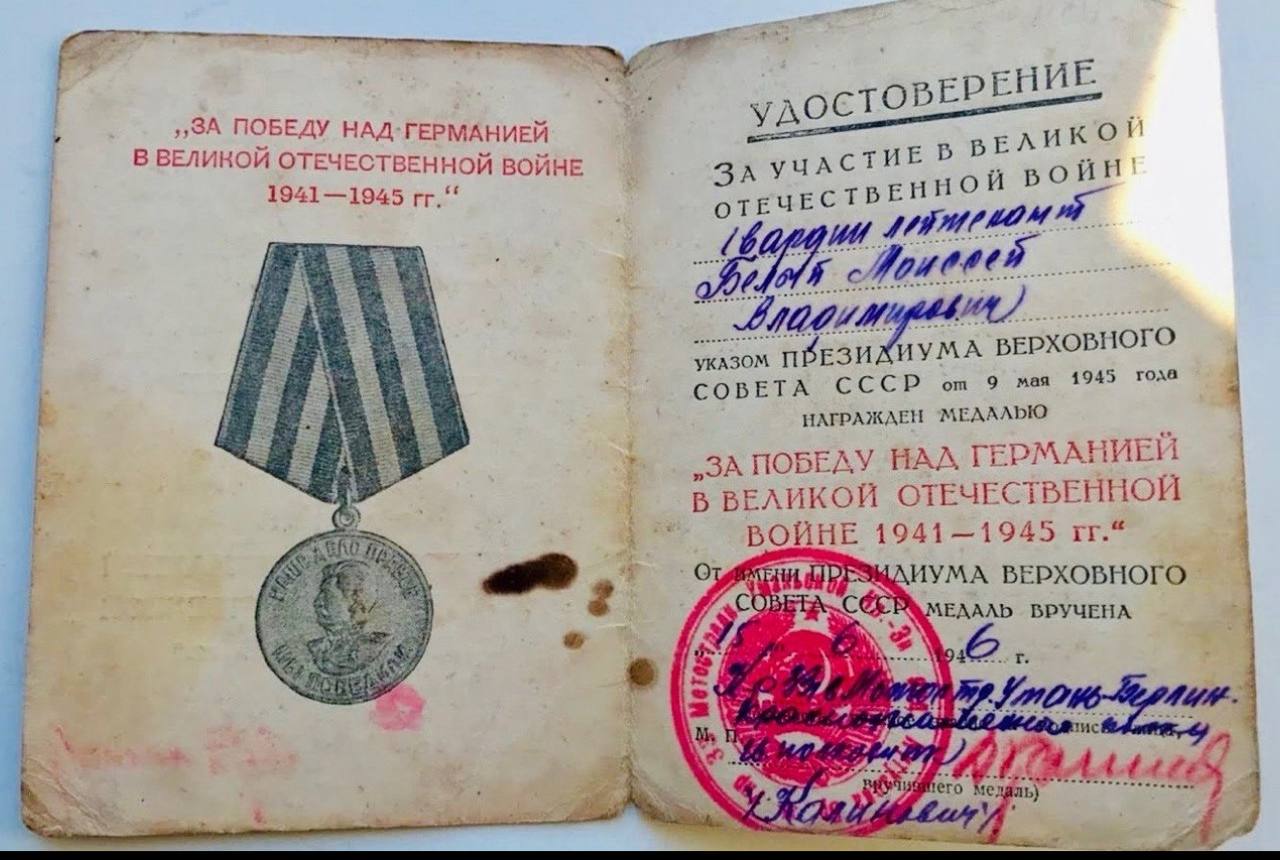 „ЗА ПОБЕДУ НАД ГЕРМАНИЕЙ
В ВЕЛИКОЙ ОТЕЧЕСТВЕННОЙ ВОЙНЕ
1941—1945 гг.“
НАШЕ ДЕЛО ПРАВОЕ
МЫ ПОБЕДИЛИ
УДОСТОВЕРЕНИЕ
ЗА УЧАСТИЕ В ВЕЛИКОЙ
ОТЕЧЕСТВЕННОЙ ВОЙНЕ
Гвардии лейтенант
Белый Моиссей
Владимирович
УКАЗОМ ПРЕЗИДИУМА ВЕРХОВНОГО
СОВЕТА СССР от 9 мая 1945 года
НАГРАЖДЕН МЕДАЛЬЮ
„ЗА ПОБЕДУ НАД ГЕРМАНИЕЙ
В ВЕЛИКОЙ ОТЕЧЕСТВЕННОЙ
ВОЙНЕ 1941—1945 гг.“
От ИМЕНИ ПРЕЗИДИУМА ВЕРХОВНОГО
СОВЕТА СССР МЕДАЛЬ ВРУЧЕНА
"15" 6 1946 г.
Мотостр. Умань-Берлин.
М. П.
вручившего медаль)
/Калинович/